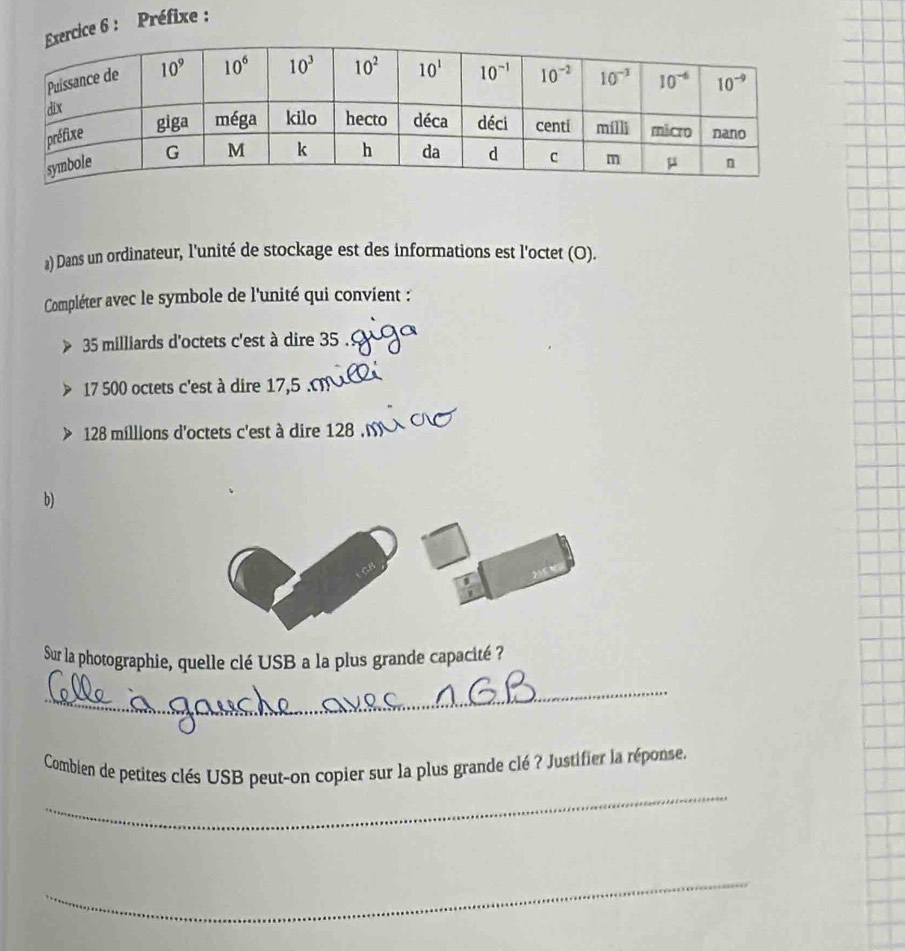 Exercice 6 : Préfixe :
Puissance de dix 10⁹ 10⁶ 10³ 10² 10¹ 10⁻¹ 10⁻² 10⁻³ 10⁻⁶ 10⁻⁹
préfixe giga méga kilo hecto déca déci centi milli micro nano
symbole G M k h da d c m μ n
a) Dans un ordinateur, l'unité de stockage est des informations est l'octet (O).
Compléter avec le symbole de l'unité qui convient :
➤ 35 milliards d'octets c'est à dire 35 .giga
➤ 17 500 octets c'est à dire 17,5 .milli
➤ 128 millions d'octets c'est à dire 128 .micro
b)
1 GB
Sur la photographie, quelle clé USB a la plus grande capacité ?
Celle à gauche avec 1GB
Combien de petites clés USB peut-on copier sur la plus grande clé ? Justifier la réponse.